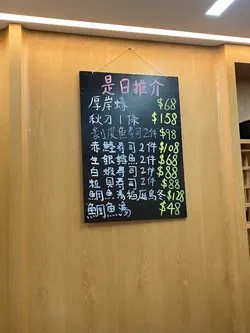 是日推介
厚岸蠔 $68
秋刀1條 $158
剝皮魚壽司2件 $98
赤鯥寿司2件 $108
生銀鱈魚2件 $68
白蝦寿司2件 $88
粒貝寿司2件 $88
鯛魚湯稻庭烏冬 $128
鯛魚湯 $48